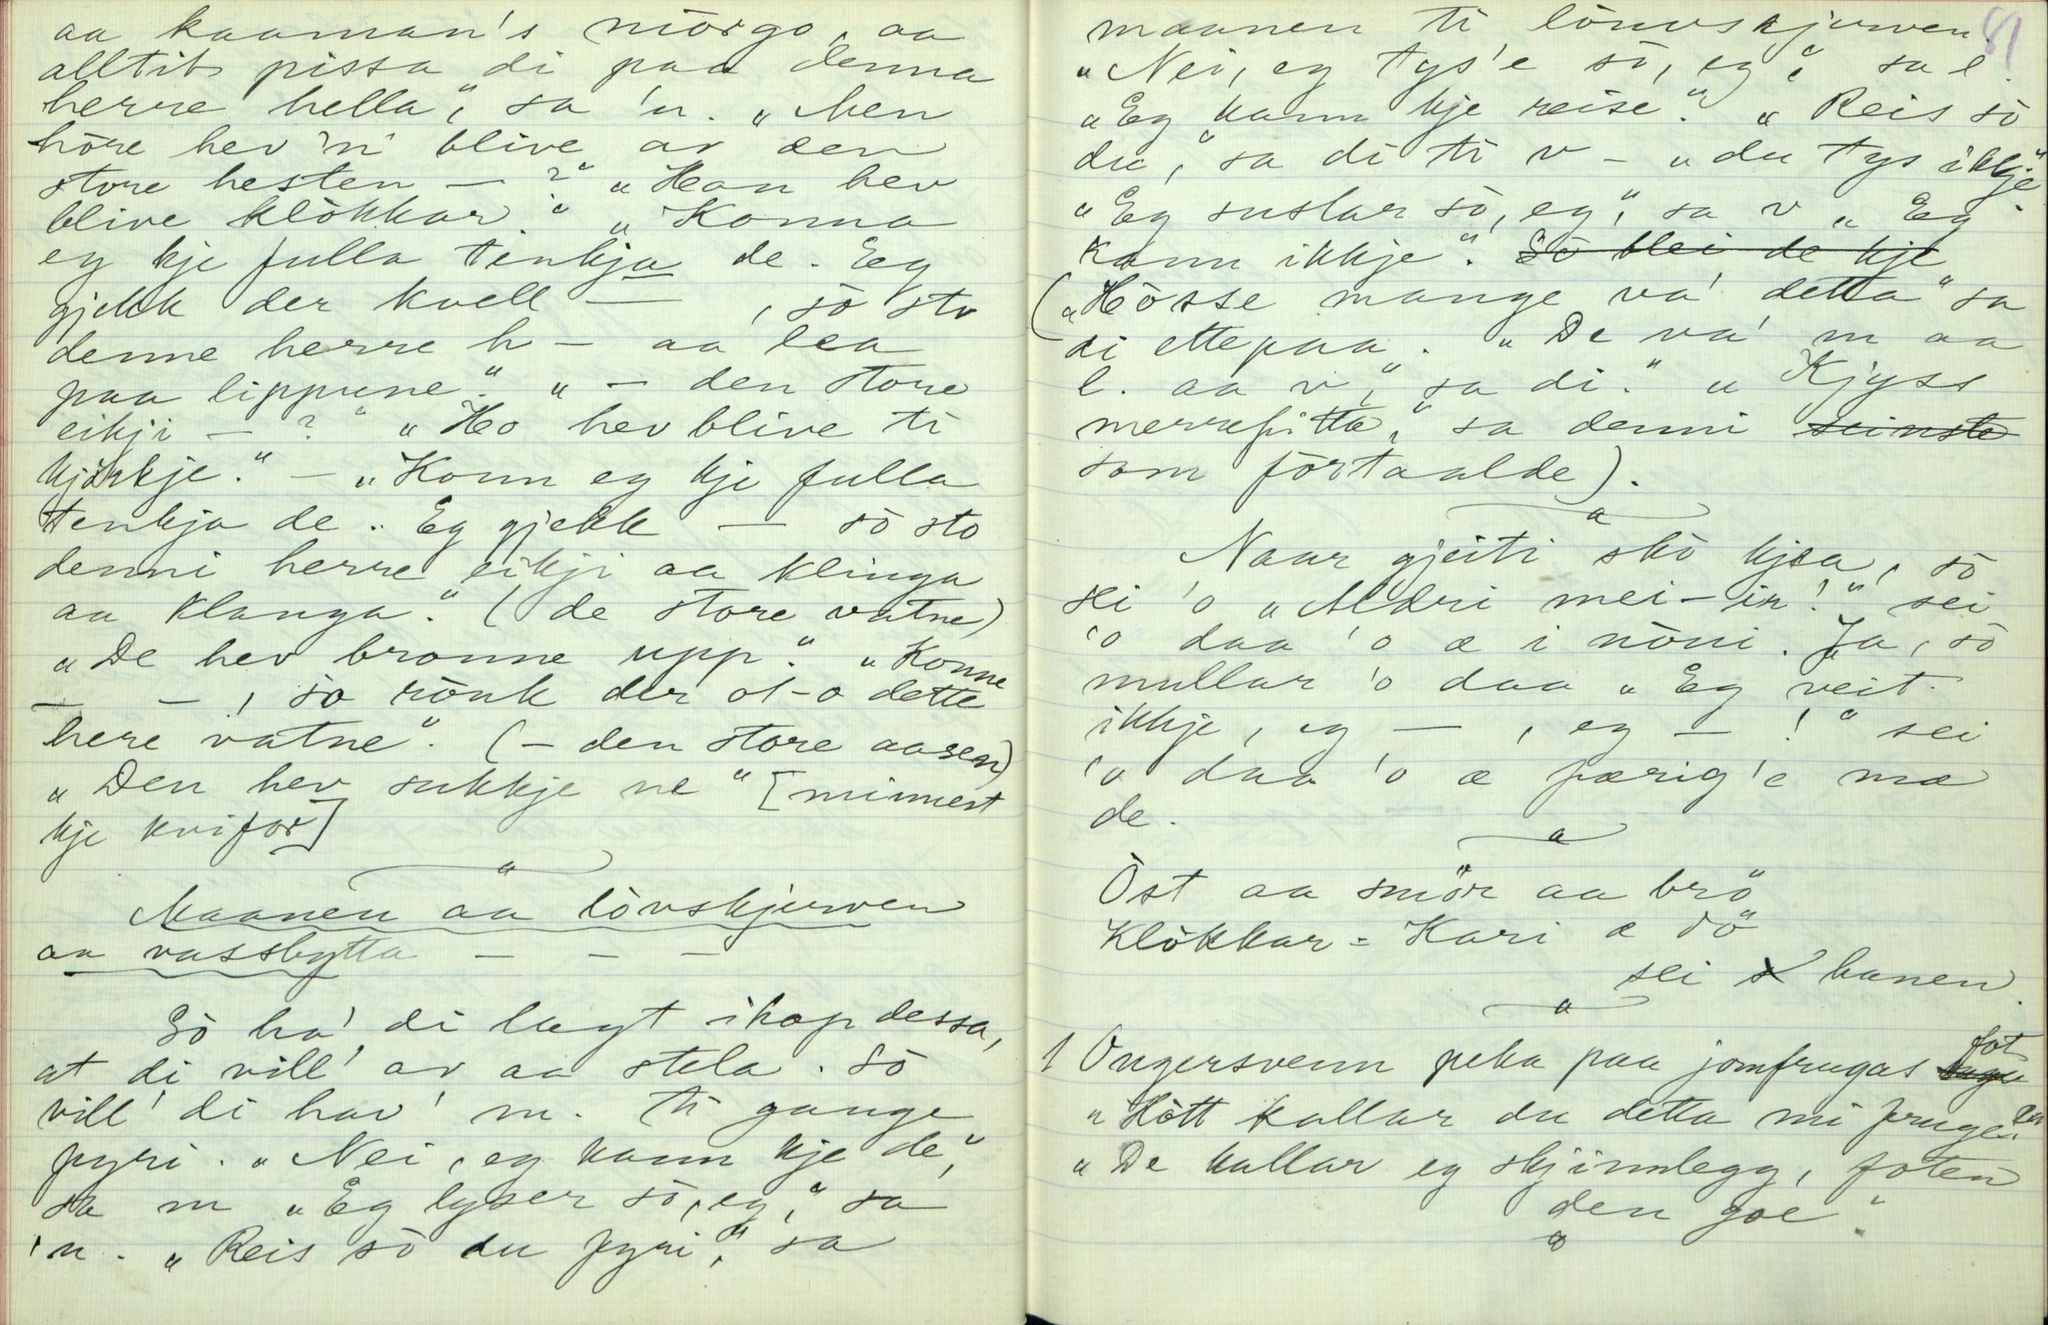 aa kaaman's mörgo, aa
alltib pissa di paa denna
herre hella", sa 'n. „Men
höre hev 'n' blive av den
store hesten — ?" „Han hev
blive klökkar." „Konna
eg kje fulla tenkja de. Eg
gjekk der kvell — , sö sto
denne herre h – aa lea
paa lippune." „ – den store
eikji – ?" „Ho hev blive ti
kjörkje." – „Konn eg kje fulla
tenkja de. Eg gjekk — sö sto
denni herre eikji aa klinga
aa klanga." (de store vatne)
„De hev bronne upp." „Konne
— – , so rönk der ot-o dette
here vatne". (– den store aasen)
„Den hev sukkje ne" [minnest
kje kvifor]
Maanen aa lövskjerven
aa vassbytta — — —
Sö ha' di lagt ihop dessa,
at di vill' av aa stela. Sö
vill' di hav' m. ti gange
fyri. „Nei, eg kann kje de",
sa m „Eg lyser sö, eg", sa
'n. „Reis sö du fyri", sa
81
maanen ti lönvskjerven.
„Nei, eg tys'e sö, eg", sa l.
„Eg kann kje reise". „Reis sö
du", sa di ti v – „du tys ikkje".
„Eg suslar sö, eg", sa v „Eg
kann ikkje". Sö blei de kje
(„Hösse mange va' detta" sa
di ettepaa. „De va' m aa
l. aa v", sa di." „Kjyss
merrefitta", sa denni seinste
som förtaalde).
Naar gjeiti skö kjea, sö
sei 'o „Aldri mei-ir!" sei
'o daa 'o æ i nöni. Ja, sö
mullar 'o daa „Eg veit
ikkje, eg — , eg — !" sei
'o daa 'o æ færig'e mæ
de.
Öst aa smör aa brö
Klökkar-Kari æ dö
sei hanen.
1 Ongersvenn peka paa jomfrugas fot
„Hött kallar du detta mi fruge
„De kallar eg skjinnlegg, foten
den goe".